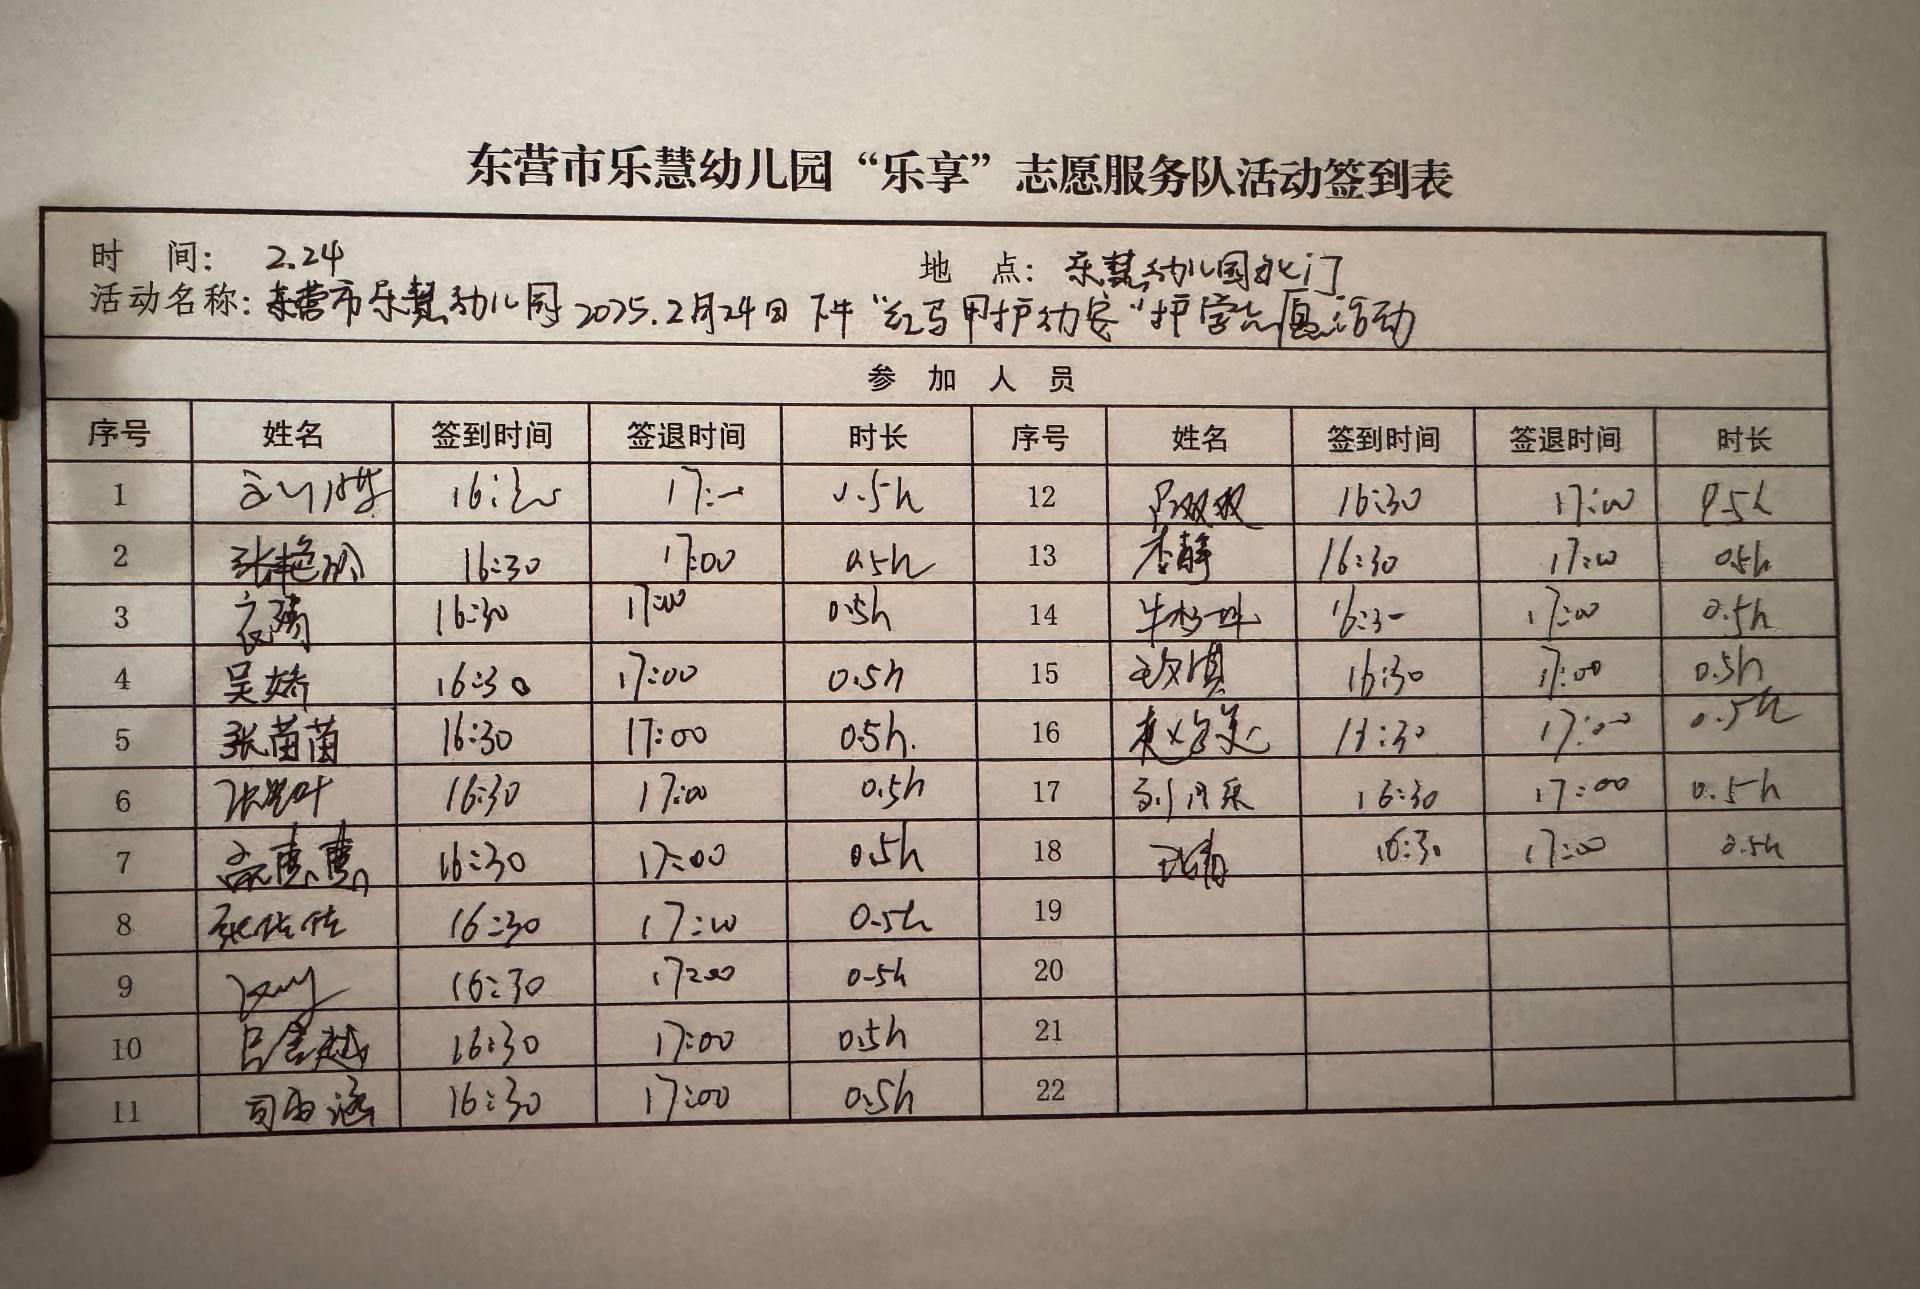 东营市乐慧幼儿园“乐享”志愿服务队活动签到表
时 间: 2.24 地 点: 乐慧幼儿园北门
活动名称: 东营市乐慧幼儿园2025.2月24日下午“红马甲护幼安”护学志愿活动
参 加 人 员
序号 姓名 签到时间 签退时间 时长 序号 姓名 签到时间 签退时间 时长
1 16:30 17:00 0.5h 12 吕双双 16:30 17:00 0.5h
2 张艳玲 16:30 17:00 0.5h 13 李静 16:30 17:00 0.5h
3 16:30 17:00 0.5h 14 16:30 17:00 0.5h
4 吴娇 16:30 17:00 0.5h 15 16:30 17:00 0.5h
5 张苗苗 16:30 17:00 0.5h. 16 16:30 17:00 0.5h
6 16:30 17:00 0.5h 17 16:30 17:00 0.5h
7 高惠惠 16:30 17:00 0.5h 18 16:30 17:00 0.5h
8 张佳佳 16:30 17:00 0.5h 19
9 16:30 17:00 0.5h 20
10 16:30 17:00 0.5h 21
11 司雨涵 16:30 17:00 0.5h 22